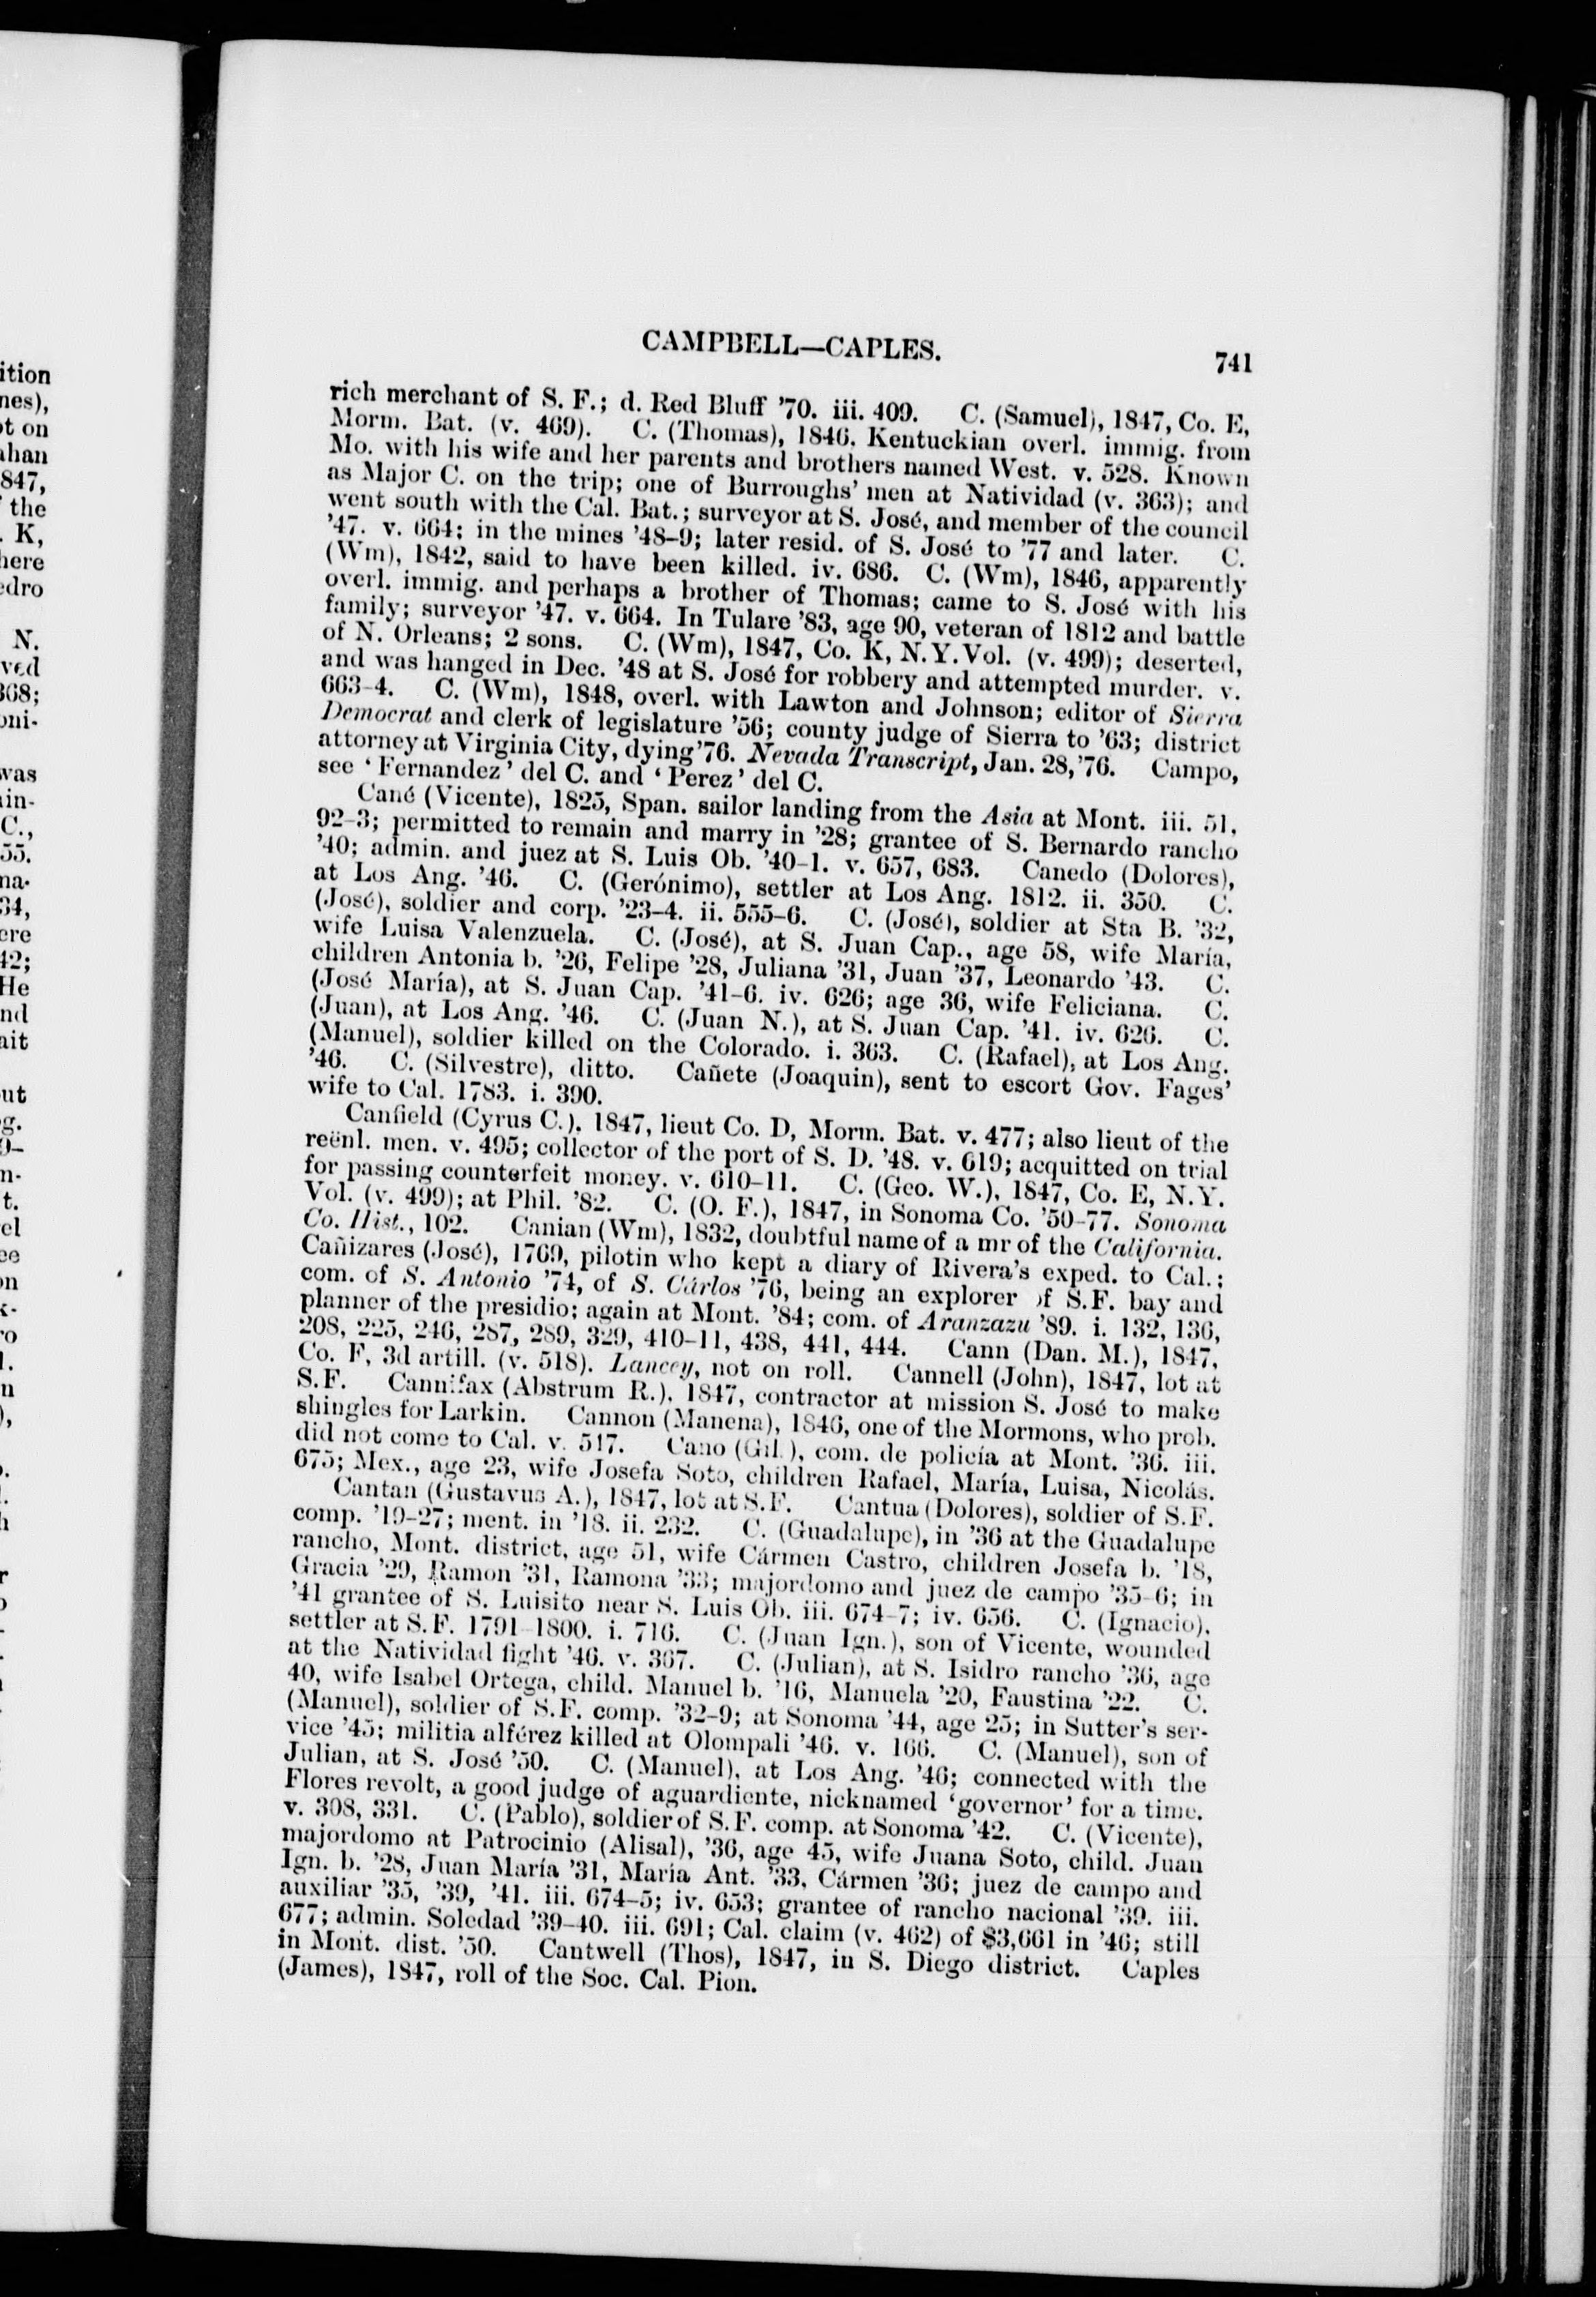 CAMPBELL—CAPLES.
741
rich merchant of S. F.; d. Red Bluff ’70. iii. 409. C. (Samuel), 1847, Co. E,
Morm. Bat. (v. 469). C. (Thomas), 1846, Kentuckian overl. immig. from
Mo. with his wife and her parents and brothers named West. v. 528. Known
as Major C. on the trip; one of Burroughs’ men at Natividad (v. 363); and
went south with the Cal. Bat.; surveyor at S. José, and member of the council
’47. v. 664; in the mines ’48–9; later resid. of S. José to ’77 and later. C.
(Wm), 1842, said to have been killed. iv. 686. C. (Wm), 1846, apparently
overl. immig. and perhaps a brother of Thomas; came to S. José with his
family; surveyor ’47. v. 664. In Tulare ’83, age 90, veteran of 1812 and battle
of N. Orleans; 2 sons. C. (Wm), 1847, Co. K, N.Y. Vol. (v. 499); deserted,
and was hanged in Dec. ’48 at S. José for robbery and attempted murder. v.
663–4. C. (Wm), 1848, overl. with Lawton and Johnson; editor of Sierra
Democrat and clerk of legislature ’56; county judge of Sierra to ’63; district
attorney at Virginia City, dying ’76. Nevada Transcript, Jan. 28, ’76. Campo,
see ‘Fernandez’ del C. and ‘Perez’ del C.
Cané (Vicente), 1825, Span. sailor landing from the Asia at Mont. iii. 51,
92–3; permitted to remain and marry in ’28; grantee of S. Bernardo rancho
’40; admin. and juez at S. Luis Ob. ’40–1. v. 657, 683. Canedo (Dolores),
at Los Ang. ’46. C. (Gerónimo), settler at Los Ang. 1812. ii. 350. C.
(José), soldier and corp. ’23–4. ii. 555–6. C. (José), soldier at Sta B. ’32,
wife Luisa Valenzuela. C. (José), at S. Juan Cap., age 58, wife María,
children Antonia b. ’26, Felipe ’28, Juliana ’31, Juan ’37, Leonardo ’43. C.
(José María), at S. Juan Cap. ’41–6. iv. 626; age 36, wife Feliciana. C.
(Juan), at Los Ang. ’46. C. (Juan N.), at S. Juan Cap. ’41. iv. 626. C.
(Manuel), soldier killed on the Colorado. i. 363. C. (Rafael), at Los Ang.
’46. C. (Silvestre), ditto. Cañete (Joaquin), sent to escort Gov. Fages’
wife to Cal. 1783. i. 390.
Canfield (Cyrus C.), 1847, lieut Co. D, Morm. Bat. v. 477; also lieut of the
reënl. men. v. 495; collector of the port of S. D. ’48. v. 619; acquitted on trial
for passing counterfeit money. v. 610–11. C. (Geo. W.), 1847, Co. E, N.Y.
Vol. (v. 499); at Phil. ’82. C. (O. F.), 1847, in Sonoma Co. ’50–77. Sonoma
Co. Hist., 102. Canian (Wm), 1832, doubtful name of a mr of the California.
Cañizares (José), 1769, pilotin who kept a diary of Rivera’s exped. to Cal.;
com. of S. Antonio ’74, of S. Cárlos ’76, being an explorer of S.F. bay and
planner of the presidio; again at Mont. ’84; com. of Aranzazu ’89. i. 132, 136,
208, 225, 246, 287, 289, 329, 410–11, 438, 441, 444. Cann (Dan. M.), 1847,
Co. F, 3d artill. (v. 518). Lancey, not on roll. Cannell (John), 1847, lot at
S.F. Cannifax (Abstrum R.), 1847, contractor at mission S. José to make
shingles for Larkin. Cannon (Manena), 1846, one of the Mormons, who prob.
did not come to Cal. v. 517. Cano (Gil.), com. de policía at Mont. ’36. iii.
675; Mex., age 23, wife Josefa Soto, children Rafael, María, Luisa, Nicolás.
Cantan (Gustavus A.), 1847, lot at S.F. Cantua (Dolores), soldier of S.F.
comp. ’19–27; ment. in ’18. ii. 232. C. (Guadalupe), in ’36 at the Guadalupe
rancho, Mont. district, age 51, wife Cármen Castro, children Josefa b. ’18,
Gracia ’29, Ramon ’31, Ramona ’33; majordomo and juez de campo ’35–6; in
’41 grantee of S. Luisito near S. Luis Ob. iii. 674–7; iv. 656. C. (Ignacio),
settler at S.F. 1791–1800. i. 716. C. (Juan Ign.), son of Vicente, wounded
at the Natividad fight ’46. v. 367. C. (Julian), at S. Isidro rancho ’36, age
40, wife Isabel Ortega, child. Manuel b. ’16, Manuela ’20, Faustina ’22. C.
(Manuel), soldier of S.F. comp. ’32–9; at Sonoma ’44, age 25; in Sutter’s ser-
vice ’45; militia alférez killed at Olompali ’46. v. 166. C. (Manuel), son of
Julian, at S. José ’50. C. (Manuel), at Los Ang. ’46; connected with the
Flores revolt, a good judge of aguardiente, nicknamed ‘governor’ for a time.
v. 308, 331. C. (Pablo), soldier of S.F. comp. at Sonoma ’42. C. (Vicente),
majordomo at Patrocinio (Alisal), ’36, age 45, wife Juana Soto, child. Juan
Ign. b. ’28, Juan María ’31, María Ant. ’33, Cármen ’36; juez de campo and
auxiliar ’35, ’39, ’41. iii. 674–5; iv. 653; grantee of rancho nacional ’39. iii.
677; admin. Soledad ’39–40. iii. 691; Cal. claim (v. 462) of $3,661 in ’46; still
in Mont. dist. ’50. Cantwell (Thos), 1847, in S. Diego district. Caples
(James), 1847, roll of the Soc. Cal. Pion.